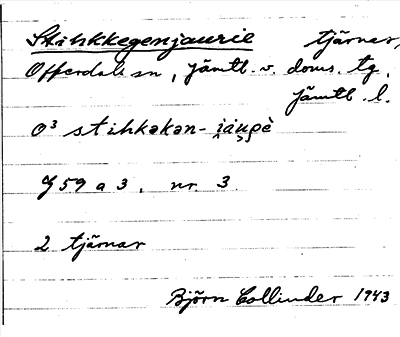 Stihkkegenjaurie tjärnar,
Offerdals sn, Jämtl. v. doms. tg.
Jämtl. l.
O³ stihkəkən-
459 a 3, nr. 3
2 tjärnar
Björn Collinder 1943